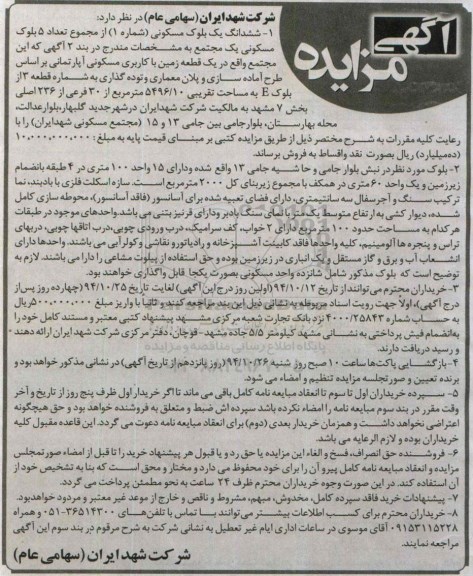 آگهی مزایده
شرکت شهد ایران (سهامی عام) در نظر دارد:
۱- ششدانگ یک بلوک مسکونی (شماره ۱) از مجموع تعداد ۵ بلوک
مسکونی یک مجتمع به مشخصات مندرج در بند ۲ آگهی که این
مجتمع واقع در یک قطعه زمین با کاربری مسکونی آپارتمانی بر اساس
طرح آماده سازی و پلان معماری و توده گذاری به شماره قطعه ۳ از
بلوک E به مساحت تقریبی ۵۴۹۶/۱۰ مترمربع از ۳۰ فرعی از ۲۳۶ اصلی
بخش ۷ مشهد به مالکیت شرکت شهد ایران در شهر جدید گلبهار، بلوار عدالت،
محله بهارستان، بلوار جامی بین جامی ۱۳ و ۱۵ (مجتمع مسکونی شهد ایران) را با
رعایت کلیه مقررات به شرح مختصر ذیل از طریق مزایده کتبی بر مبنای قیمت پایه به مبلغ: ۱۰,۰۰۰,۰۰۰,۰۰۰
(ده میلیارد) ریال بصورت نقد و اقساط به فروش برساند.
۲- بلوک مورد نظر در نبش بلوار جامی و حاشیه جامی ۱۳ واقع شده و دارای ۱۵ واحد ۱۰۰ متری در ۴ طبقه بانضمام
زیرزمین و یک واحد ۶۰ متری در همکف با مجموع زیربنای کل ۲۰۰۰ مترمربع است. سازه اسکلت فلزی با بادبند، نما
ترکیب سنگ و آجر سفال سه سانتیمتری، دارای فضای تعبیه شده برای آسانسور (فاقد آسانسور)، محوطه سازی کامل
شده، دیوار کشی به ارتفاع متوسط یک متر با نمای سنگ بادبر و دارای قرنیز بتنی می باشد. واحدهای موجود در طبقات
هر کدام به مساحت حدود ۱۰۰ مترمربع دارای ۲ خواب، کف سرامیک، درب ورودی چوبی، درب اتاقها چوبی، دربهای
تراس و پنجره ها آلومینیم، کلیه واحدها فاقد کابینت آشپزخانه و رادیاتور و نقاشی و کولر آبی می باشند. واحدها دارای
انشعاب آب و برق و گاز مستقل و یک انباری در زیرزمین بوده و حق استفاده از پیلوت مشاعی را دارا می باشند. لازم به
توضیح است که بلوک مذکور شامل شانزده واحد مسکونی بصورت یکجا قابل واگذاری خواهند بود.
۳- خریداران محترم می توانند از تاریخ ۹۴/۱۰/۱۲ (اولین روز درج این آگهی) لغایت تاریخ ۹۴/۱۰/۲۵ (چهارده روز پس از
درج آگهی)، اولاً جهت رویت اسناد مربوطه به نشانی ذیل این بند مراجعه کنند و ثانیا با واریز مبلغ ۵۰۰,۰۰۰,۰۰۰ ریال
به حساب شماره ۴۰۰۰/۲۵۸۴۳ نزد بانک تجارت شعبه مرکزی مشهد، پیشنهاد کتبی معتبر و مستند کامل خود را
به انضمام فیش پرداختی به نشانی مشهد کیلومتر ۵/۵ جاده مشهد - قوچان، دفتر مرکزی شرکت شهد ایران ارائه دهند
و رسید دریافت دارند.
۴- بازگشایی پاکت ها ساعت ۱۰ صبح روز شنبه ۹۴/۱۰/۲۶ (روز پانزدهم از تاریخ آگهی) در نشانی مذکور خواهد بود و
برنده تعیین و صورتجلسه مزایده تنظیم و امضاء می شود.
۵- سپرده خریداران اول تا سوم تا انعقاد مبایعه نامه کامل باقی می ماند تا اگر خریدار اول ظرف پنج روز از تاریخ و آخر
وقت مقرر در بند سوم مبایعه نامه را امضاء نکرده باشد سپرده اش ضبط و متعلق به فروشنده خواهد بود و حق هیچگونه
اعتراضی نخواهد داشت و همزمان خریدار بعدی (دوم) برای انعقاد مبایعه نامه دعوت می گردد. این قاعده مقبول کلیه
خریداران بوده و لازم الرعایه می باشد.
۶- فروشنده حق انصراف، فسخ و الغاء این مزایده یا حق رد و یا قبول هر پیشنهاد خرید را تا قبل از امضاء صورتمجلس
مزایده و انعقاد مبایعه نامه کامل پیرو آن را برای خود محفوظ می دارد و مختار و محق است که بنا به تشخیص خود از
آن استفاده کند. در این صورت وجوه خریداران محترم ظرف ۲۴ ساعت به نحو مطمئن پرداخت می گردد.
۷- پیشنهادات خرید فاقد سپرده کامل، مخدوش، مبهم، مشروط و ناقص و خارج از موعد غیر معتبر و مردود خواهد بود.
۸- خریداران محترم برای کسب اطلاعات بیشتر می توانند یا تماس با تلفن های ۳۶۵۱۴۳۰۰-۰۵۱ و همراه
۰۹۱۵۳۱۱۵۲۲۸ آقای موسوی در ساعات اداری ایام غیر تعطیل به نشانی شرکت به شرح مرقوم در بند سوم این آگهی
مراجعه نمایند.
شرکت شهد ایران (سهامی عام)
پایگاه اطلاع رسانی مناقصه و مزایده